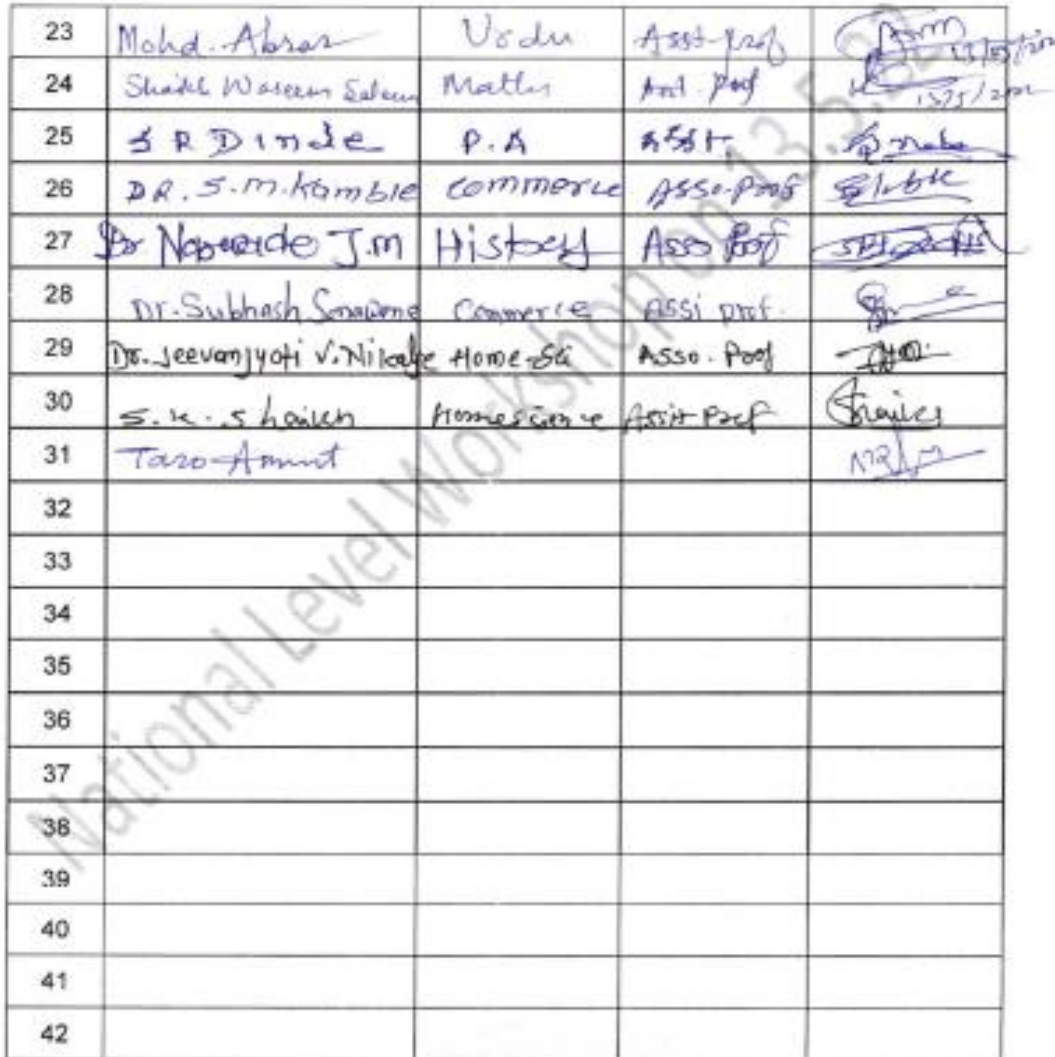 23 Mohd. Abrar Urdu Asst. prof 13/05/202
24 Shaikh Waseem Saleem Maths Asst. prof 13/5/202
25 S R Dinde P.A Asst
26 DR. S.M. Kamble commerce Asso. prof
27 Dr J.M History Asso prof
28 Dr. Subhash Sonawane Commerce Assi prof.
29 Dr. Jeevanjyoti V. Home-Sci Asso. Prof
30 S.K. Shaikh Homescience Assit Prof Shaikh
31
32
33
34
35
36
37
38
39
40
41
42
National Level Workshop on 13.5.22